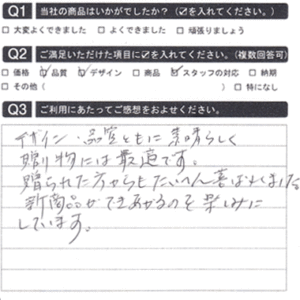 Q1 当社の商品はいかがでしたか?(☑を入れてください。)
□大変よくできました □よくできました □頑張りましょう
Q2 ご満足いただけた項目に☑を入れてください。(複数回答可)
□価格 ☑品質 ☑デザイン □商品 ☑スタッフの対応 □納期
□その他( ) □特になし
Q3 ご利用にあたってご感想をおよせください。
デザイン・品質ともに素晴らしく
贈り物には最適です。
贈られた方からもたいへん喜ばれました
新商品ができあがるのを楽しみに
しています。